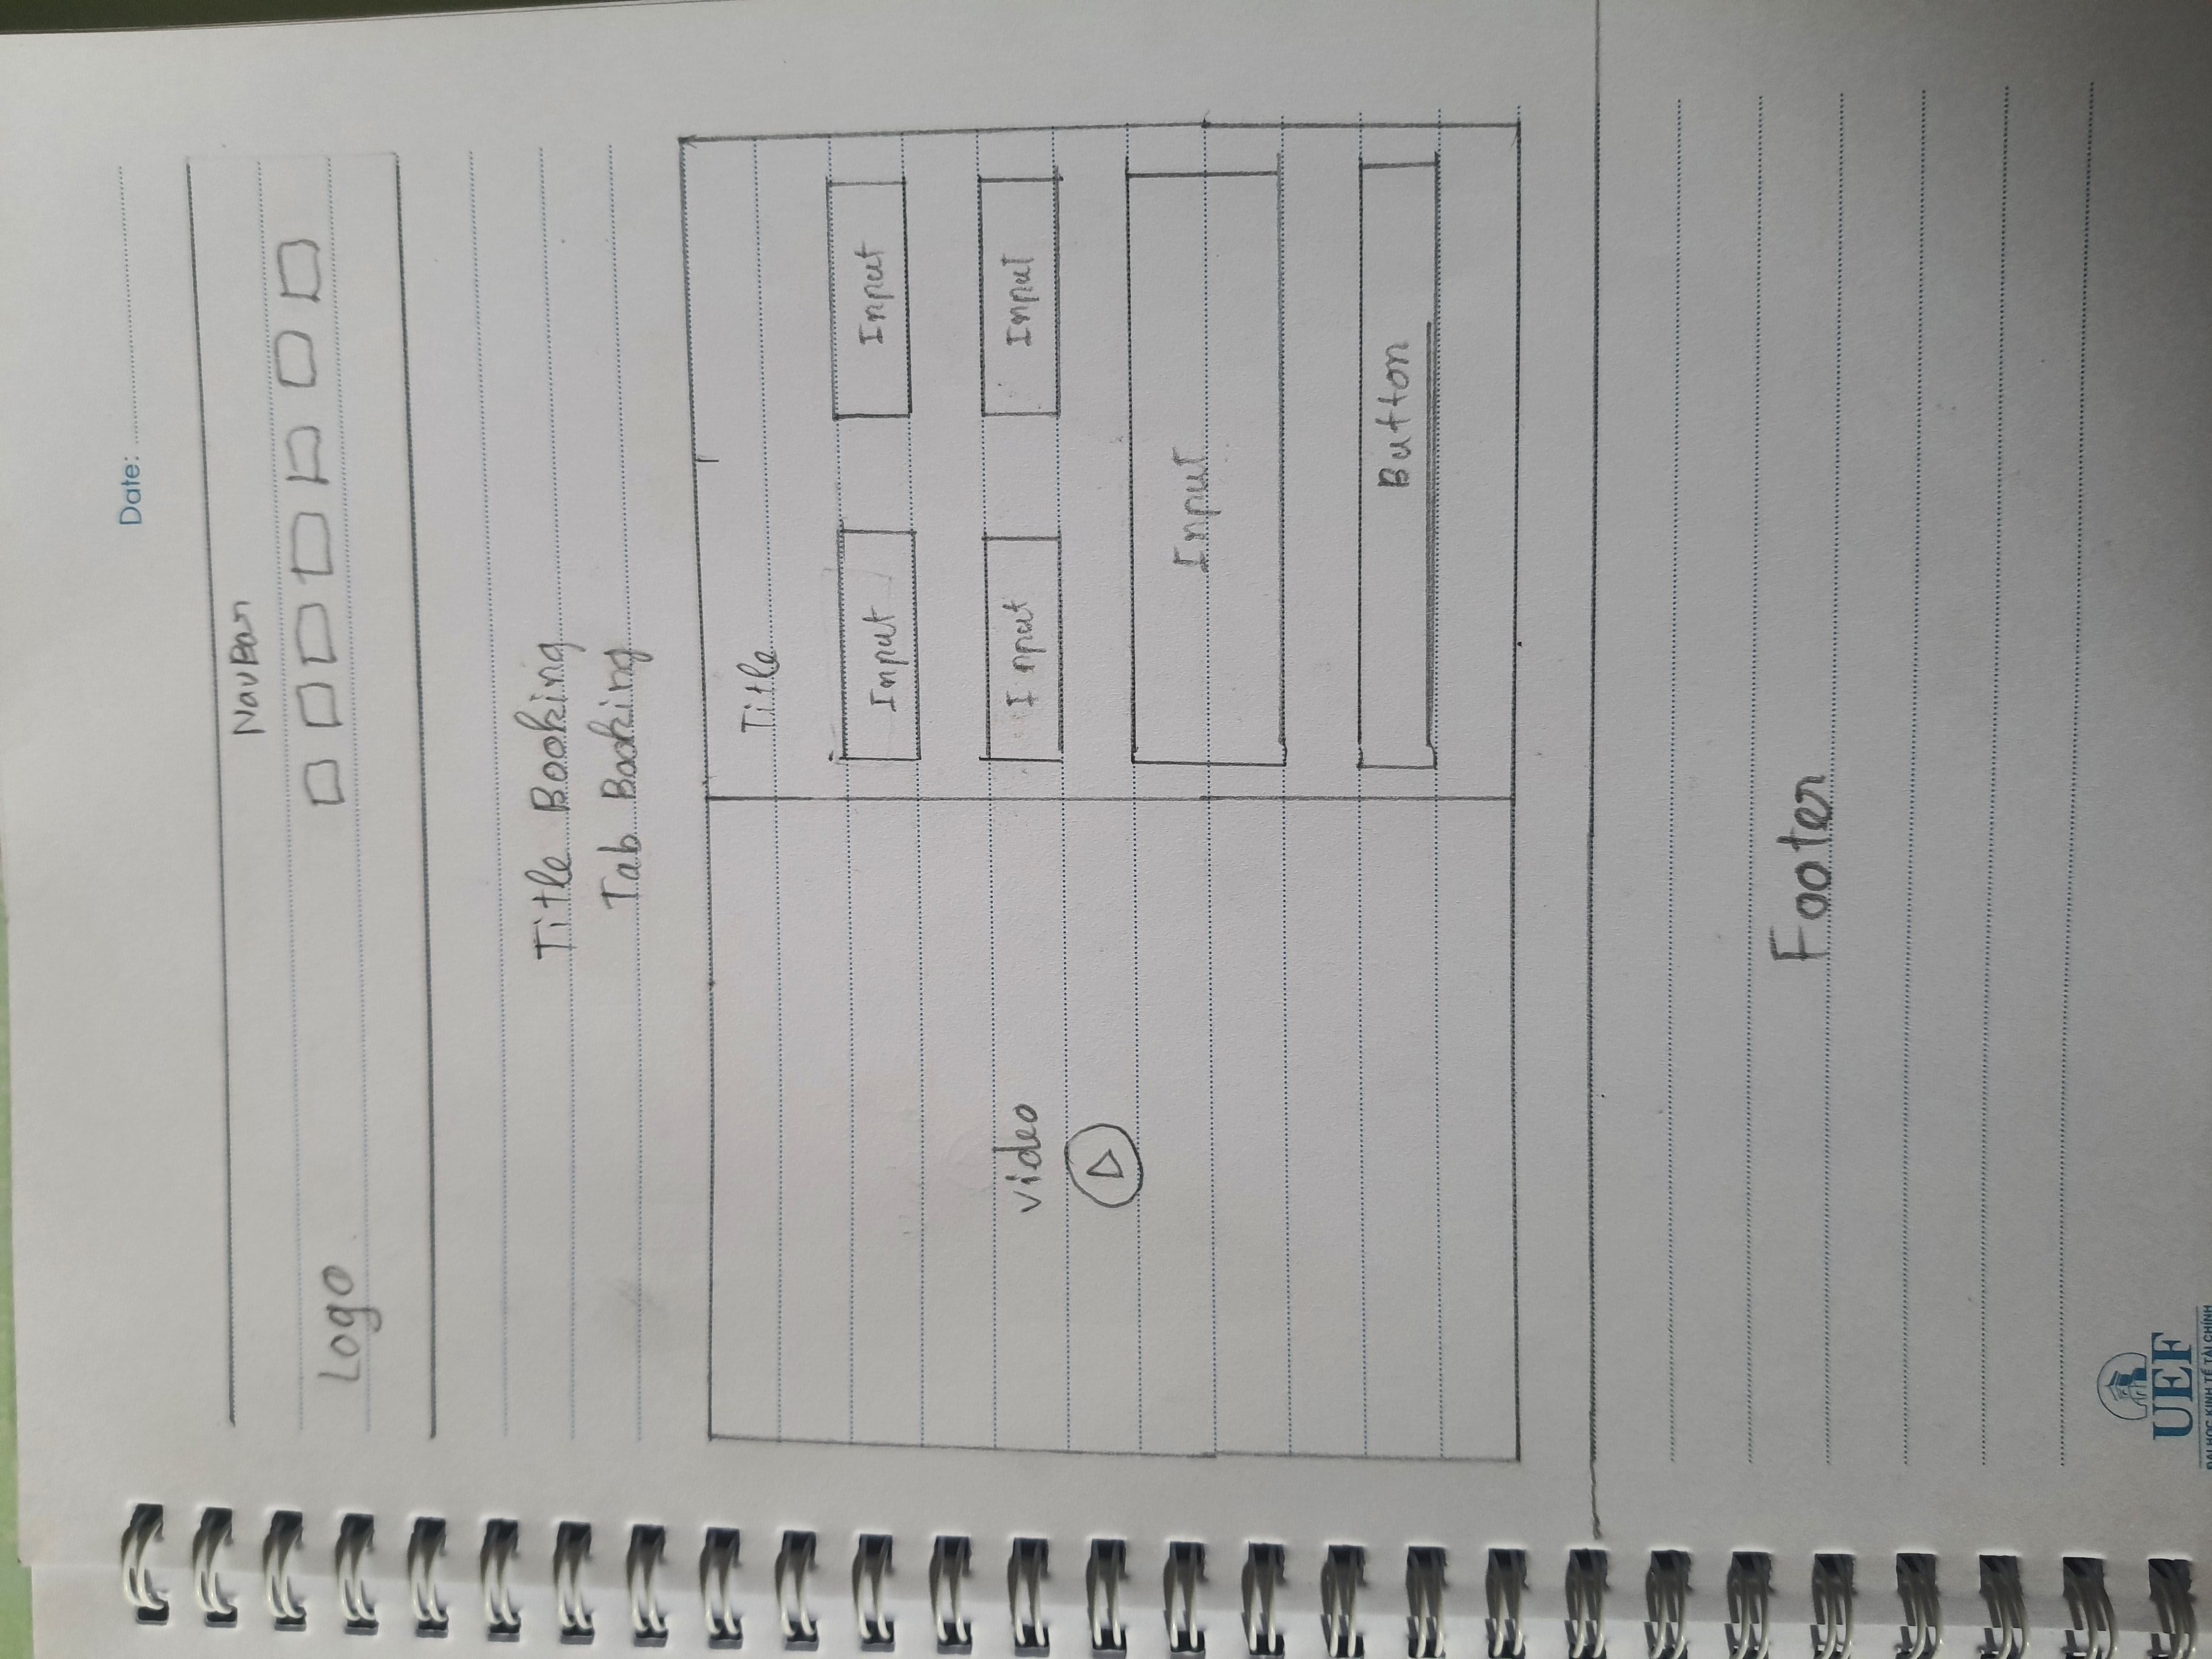 Date:
NavBar
Logo
Title Booking
Tab Booking
Title
Input Input
video
Input Input
Input
Button
Footer
UEF
ĐẠI HỌC KINH TẾ TÀI CHÍNH